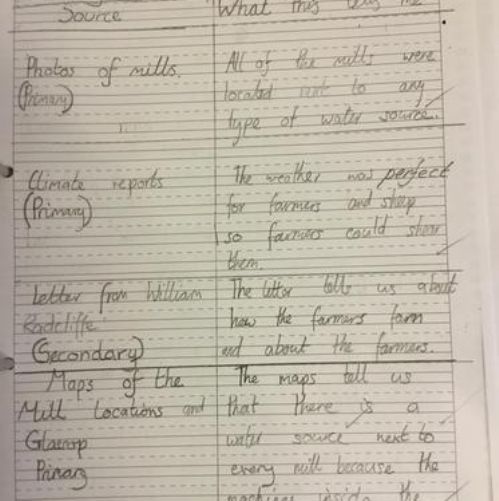 Source
What this tells me
Photos of mills.
(Primary)
All of the mills were
located next to any
type of water source.
Climate reports
(Primary)
The weather was perfect
for farmers and sheep
so farmers could shear
them.
Letter from William
Radcliffe
(Secondary)
The letter tells us about
how the farmers farm
and about the farmers.
Maps of the
Mill Locations and
Primary
The maps tell us
that there is a
water source next to
every mill because the
machines inside the